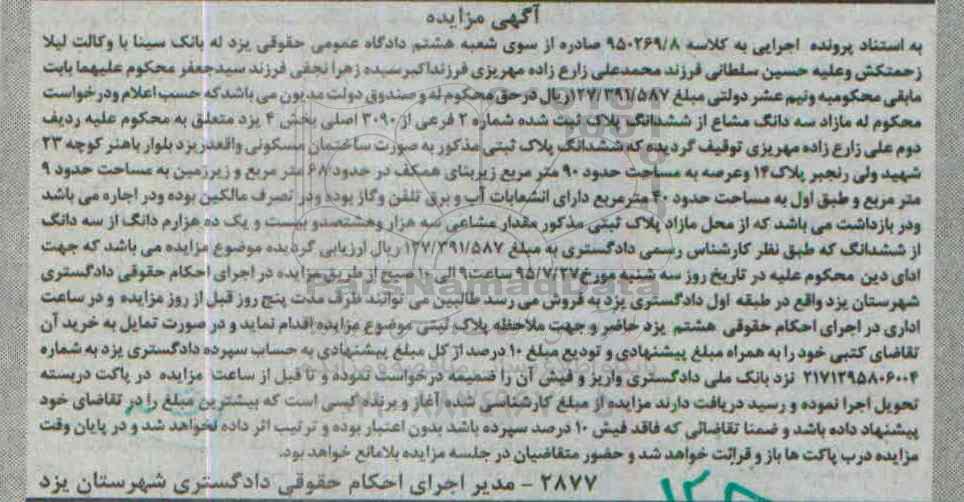 آگهی مزایده
به استناد پرونده اجرایی به کلاسه ۹۵۰۲۶۹/۸ صادره از سوی شعبه هشتم دادگاه عمومی حقوقی یزد له بانک سینا با وکالت لیلا
زحمتکش وعلیه حسین سلطانی فرزند محمدعلی زارع زاده مهریزی فرزنداکبرسیده زهرا نجفی فرزند سیدجعفر محکوم علیهما بابت
مابقی محکومبه ونیم عشر دولتی مبلغ ۱۲۷/۳۹۱/۵۸۷ریال درحق محکوم له و صندوق دولت مدیون می باشدکه حسب اعلام ودرخواست
محکوم له مازاد سه دانگ مشاع از ششدانگ پلاک ثبت شده شماره ۲ فرعی از ۳۰۹۰ اصلی بخش ۴ یزد متعلق به محکوم علیه ردیف
دوم علی زارع زاده مهریزی توقیف گردیده که ششدانگ پلاک ثبتی مذکور به صورت ساختمان مسکونی واقعدریزد بلوار باهنر کوچه ۲۳
شهید ولی رنجبر پلاک۱۴ وعرصه به مساحت حدود ۹۰ متر مربع زیربنای همکف در حدود ۶۸ متر مربع و زیرزمین به مساحت حدود ۹
متر مربع و طبق اول به مساحت حدود ۴۰ مترمربع دارای انشعابات آب و برق تلفن وگاز بوده ودر تصرف مالکین بوده ودر اجاره می باشد
ودر بازداشت می باشد که از محل مازاد پلاک ثبتی مذکور مقدار مشاعی سه هزار وهشتصدو بیست و یک ده هزارم دانگ از سه دانگ
از ششدانگ که طبق نظر کارشناس رسمی دادگستری به مبلغ ۱۲۷/۳۹۱/۵۸۷ ریال ارزیابی گردیده موضوع مزایده می باشد که جهت
ادای دین محکوم علیه در تاریخ روز سه شنبه مورخ ۹۵/۷/۲۷ ساعت ۹ الی ۱۰ صبح از طریق مزایده در اجرای احکام حقوقی دادگستری
شهرستان یزد واقع در طبقه اول دادگستری یزد به فروش می رسد طالبین می توانند ظرف مدت پنج روز قبل از روز مزایده و در ساعت
اداری در اجرای احکام حقوقی هشتم یزد حاضر و جهت ملاحظه پلاک ثبتی موضوع مزایده اقدام نماید و در صورت تمایل به خرید آن
تقاضای کتبی خود را به همراه مبلغ پیشنهادی و تودیع مبلغ ۱۰ درصد از کل مبلغ پیشنهادی به حساب سپرده دادگستری یزد به شماره
۲۱۷۱۲۹۵۸۰۶۰۰۴ نزد بانک ملی دادگستری واریز و فیش آن را ضمیمه درخواست نموده و تا قبل از ساعت مزایده در پاکت دربسته
تحویل اجرا نموده و رسید دریافت دارند مزایده از مبلغ کارشناسی شده آغاز و برنده کسی است که بیشترین مبلغ را در تقاضای خود
پیشنهاد داده باشد و ضمنا تقاضائی که فاقد فیش ۱۰ درصد سپرده باشد بدون اعتبار بوده و ترتیب اثر داده نخواهد شد و در پایان وقت
مزایده درب پاکت ها باز و قرائت خواهد شد و حضور متقاضیان در جلسه مزایده بلامانع خواهد بود.
۲۸۷۷ - مدیر اجرای احکام حقوقی دادگستری شهرستان یزد
ParsNamadData